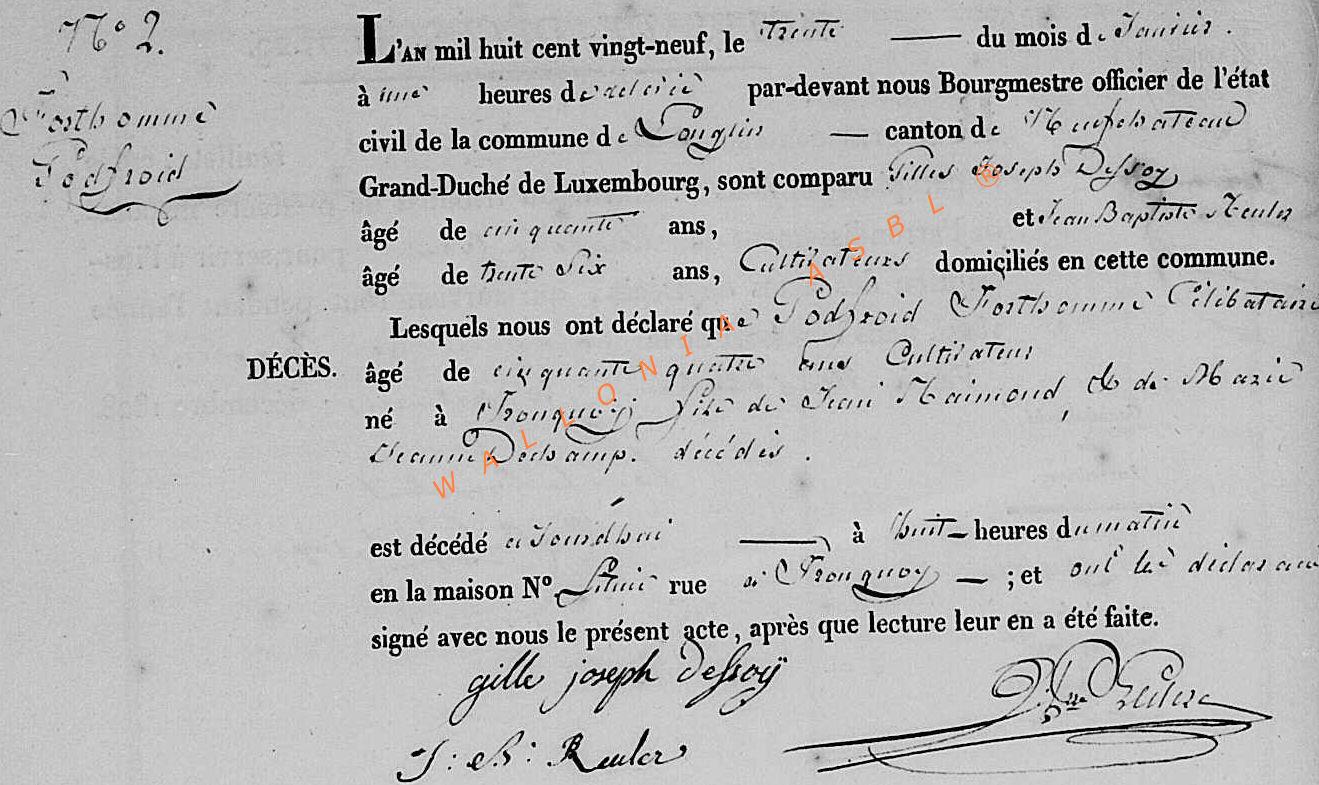 N° 2.
Forthomme
Godfroid
L'AN mil huit cent vingt-neuf, le trente du mois de Janvier.
à une heures de relevée par-devant nous Bourgmestre officier de l'état
civil de la commune de Longlier canton de Neufchateau
Grand-Duché de Luxembourg, sont comparu Gilles Joseph Dessoy
âgé de cinquante ans, et Jean Baptiste Reuler
âgé de trente Six ans, Cultivateurs domiciliés en cette commune.
Lesquels nous ont déclaré que Godfroid Forthomme Célibataire
DÉCÈS. âgé de cinquante quatre ans Cultivateur
né à Tronquoy fils de Jean Raimond, & de Marie
Jeanne Dechamp. décédés.
est décédé à huit heures du matin
en la maison N° située rue de Tronquoy ; et ont les déclarans
signé avec nous le présent acte, après que lecture leur en a été faite.
gille joseph dessoÿ
J: B: Reuler
WALLONIA ASBL ®